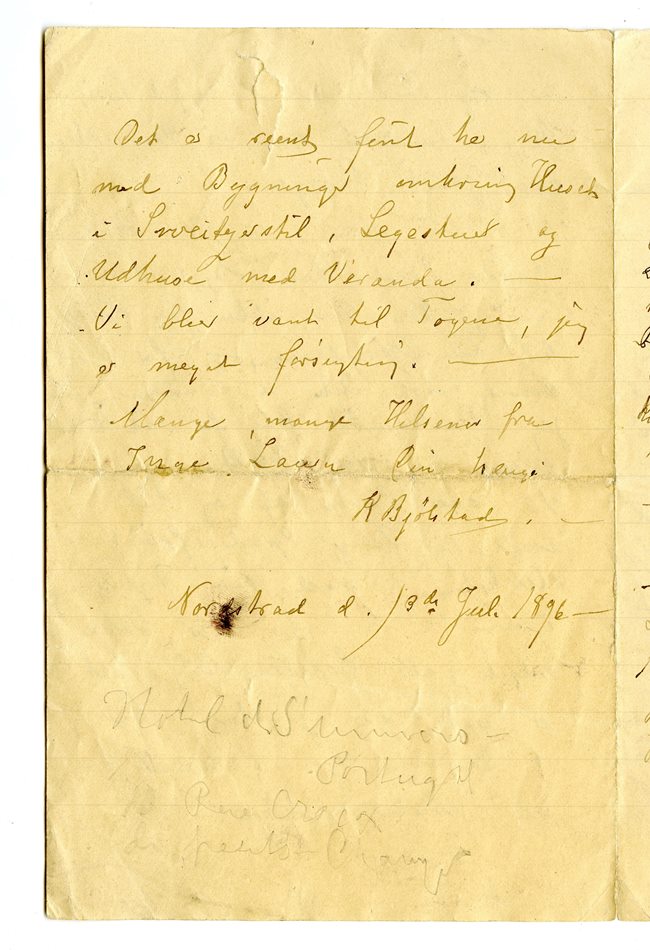 Det er reent fint he nu
med Bygninger omkring Huset
i Sveitzerstil, Legestuer og
Udhuse med Veranda. —
Vi blier vant til Togene, jeg
er meget forsigtig. —
Mange, mange Hilsener fra
Inge, Laura Din hengi
K Bjølstad. —
Nordstrad d. 13de Juli 1896 —
Hotel de l'univers —
Portugal
10 Rue Croix
des petits Champs